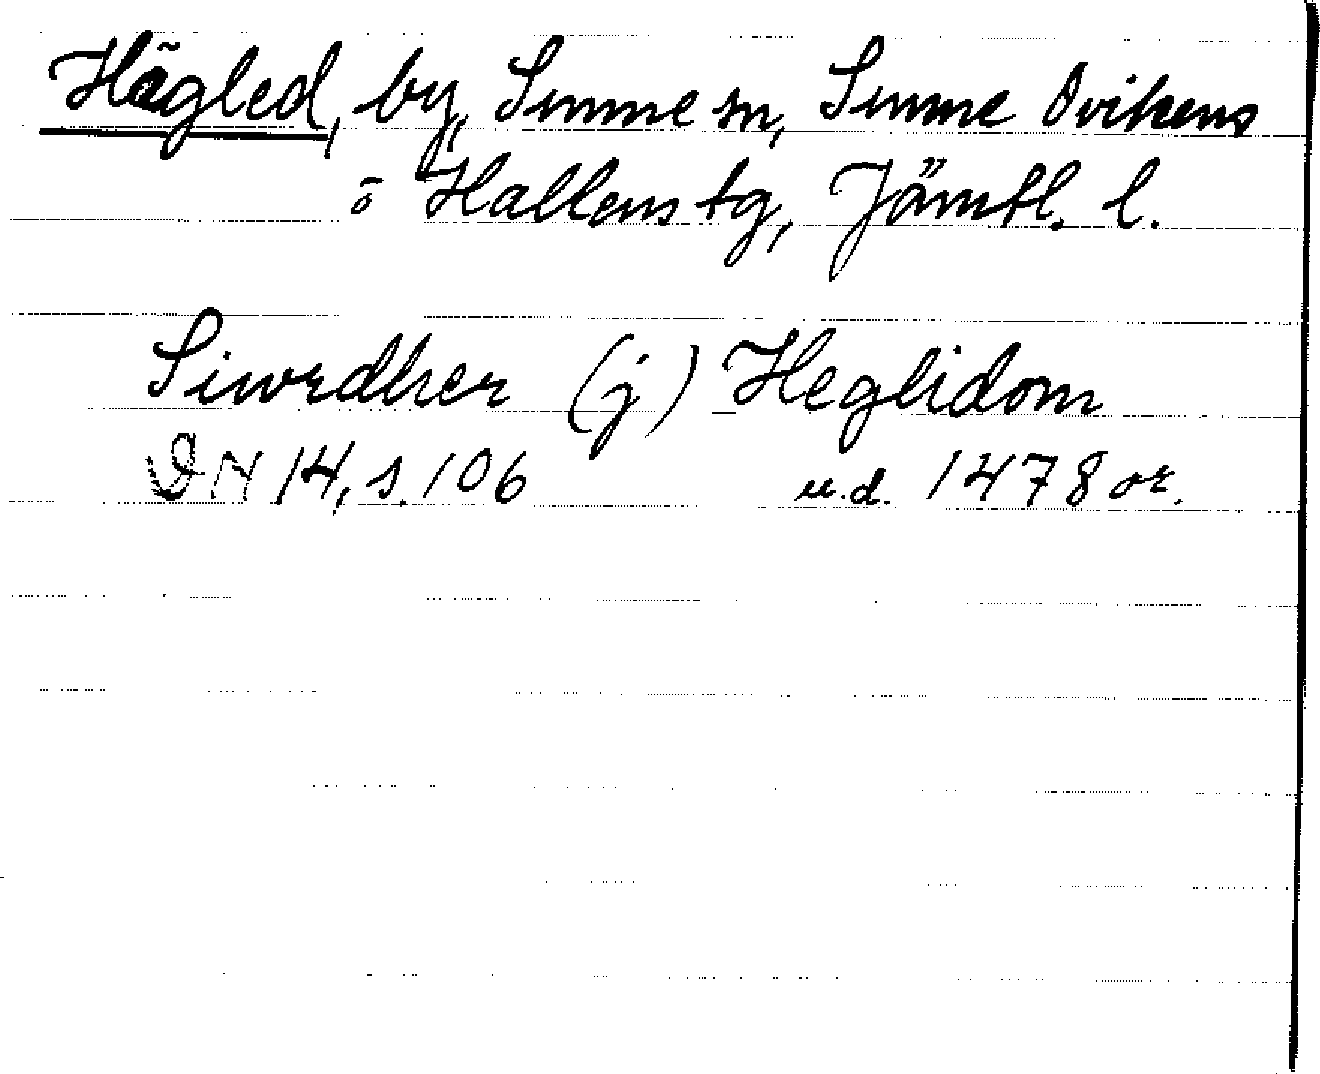 Hägled, by, Sunne sn, Sunne Ovikens
o Hallens tg, Jämtl. l.
Siwrdher (j) Heglidom
DN 14, s. 106 u.d. 1478 or.